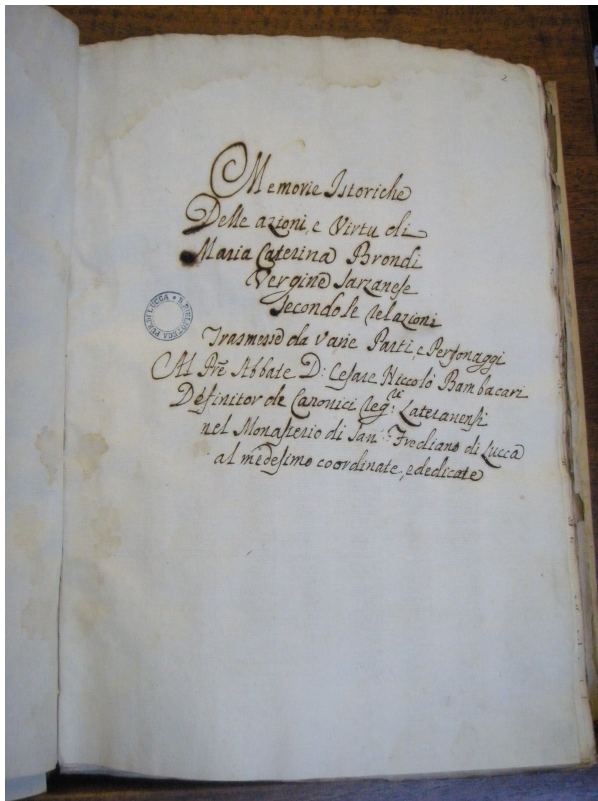 2
Memorie Istoriche
Delle azioni, e Virtu di
Maria Caterina Brondi
Vergine Sarzanese
Secondo le relazioni
Trasmesse da Varie Parti, e Personaggi
Al Pre Abbate D: Cesare Niccolò Bambacari
Definitor de Canonici Reg:ri Lateranensi
nel Monasterio di San Frediano di Lucca
al medesimo coordinate, e dedicate
R. BIBLIOTECA PUB. DI LUCCA